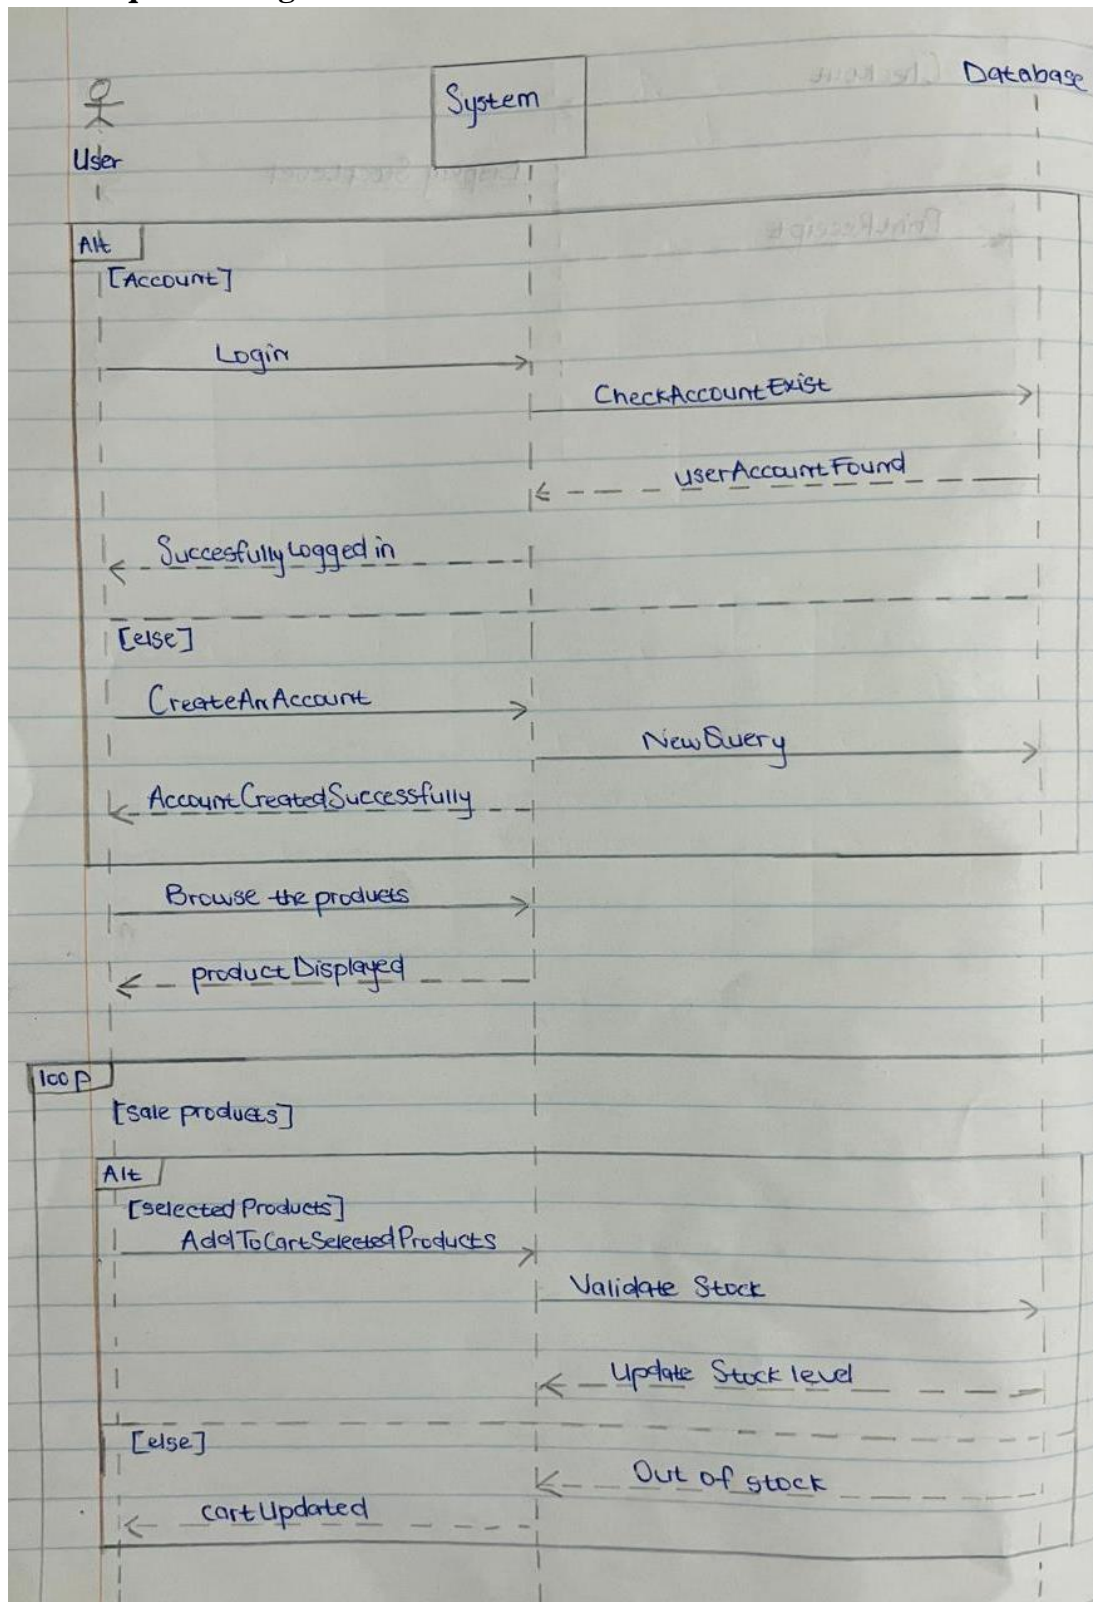 System
Database
User
Alt
[Account]
Login
CheckAccountExist
userAccountFound
SuccesfullyLogged in
[else]
CreateAnAccount
NewQuery
AccountCreatedSuccessfully
Browse the products
productDisplayed
loop
[sale products]
Alt
[selectedProducts]
AddToCartSelectedProducts
Validate Stock
Update Stock level
[else]
Out of stock
cartUpdated